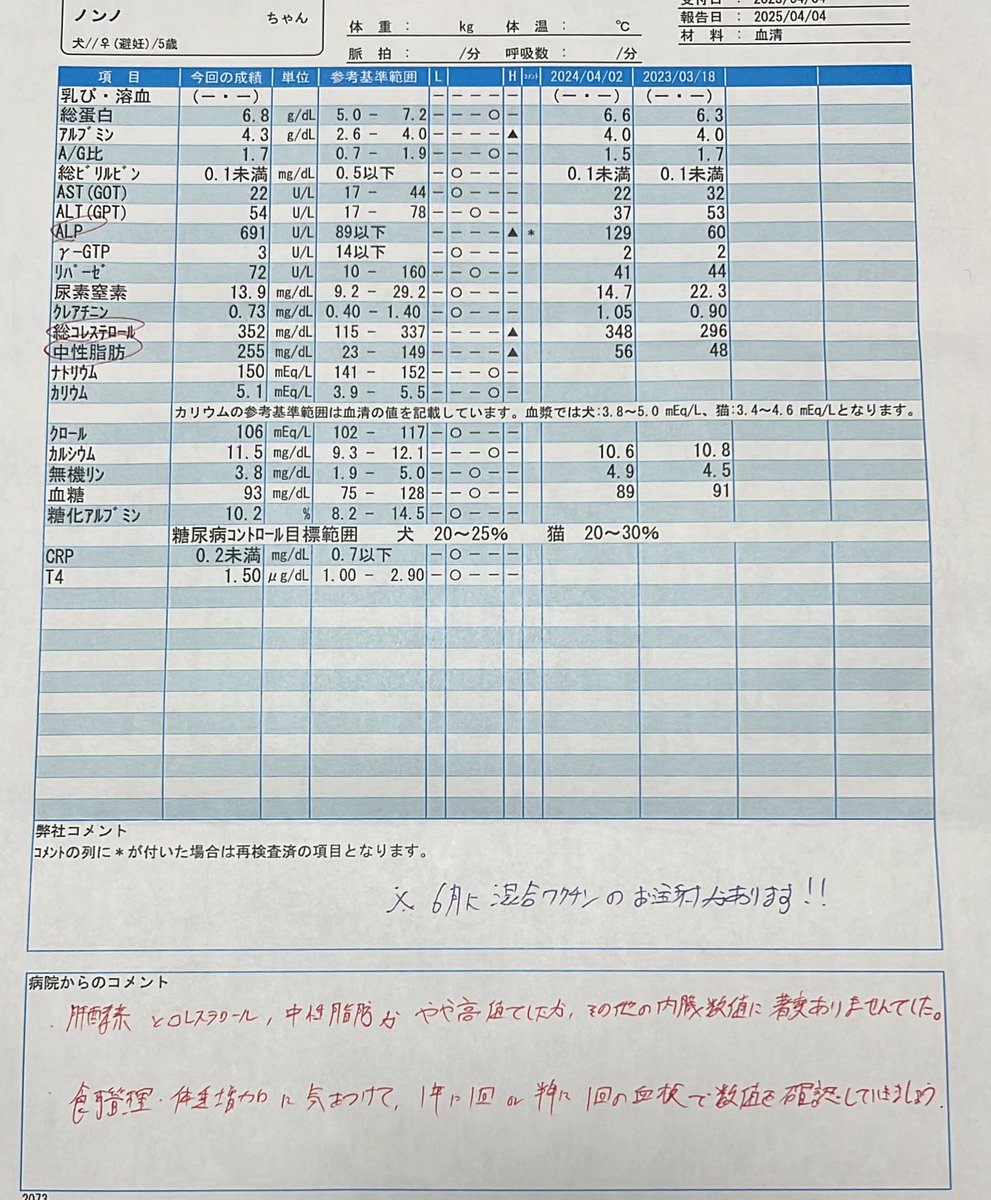 ノンノ ちゃん
犬//♀(避妊)/5歳
体 重 : kg 体 温 : ℃
脈 拍 : /分 呼吸数 : /分
報告日 : 2025/04/04
材 料 : 血清
項 目 今回の成績 単位 参考基準範囲 L H コメント 2024/04/02 2023/03/18
乳び・溶血 (－・－) －－－－－ (－・－) (－・－)
総蛋白 6.8 g/dL 5.0 - 7.2 －－－○－ 6.6 6.3
アルブミン 4.3 g/dL 2.6 - 4.0 －－－－▲ 4.0 4.0
A/G比 1.7 0.7 - 1.9 －－－○－ 1.5 1.7
総ビリルビン 0.1未満 mg/dL 0.5以下 －○－－－ 0.1未満 0.1未満
AST(GOT) 22 U/L 17 - 44 －○－－－ 22 32
ALT(GPT) 54 U/L 17 - 78 －－○－－ 37 53
ALP 691 U/L 89以下 －－－－▲ * 129 60
γ-GTP 3 U/L 14以下 －○－－－ 2 2
リパーゼ 72 U/L 10 - 160 －－○－－ 41 44
尿素窒素 13.9 mg/dL 9.2 - 29.2 －○－－－ 14.7 22.3
クレアチニン 0.73 mg/dL 0.40 - 1.40 －○－－－ 1.05 0.90
総コレステロール 352 mg/dL 115 - 337 －－－－▲ 348 296
中性脂肪 255 mg/dL 23 - 149 －－－－▲ 56 48
ナトリウム 150 mEq/L 141 - 152 －－－○－
カリウム 5.1 mEq/L 3.9 - 5.5 －－－○－
カリウムの参考基準範囲は血清の値を記載しています。血漿では犬:3.8～5.0 mEq/L、猫:3.4～4.6 mEq/Lとなります。
クロール 106 mEq/L 102 - 117 －○－－－
カルシウム 11.5 mg/dL 9.3 - 12.1 －－－○－ 10.6 10.8
無機リン 3.8 mg/dL 1.9 - 5.0 －－○－－ 4.9 4.5
血糖 93 mg/dL 75 - 128 －－○－－ 89 91
糖化アルブミン 10.2 % 8.2 - 14.5 －○－－－
糖尿病コントロール目標範囲 犬 20～25% 猫 20～30%
CRP 0.2未満 mg/dL 0.7以下 －○－－－
T4 1.50 μg/dL 1.00 - 2.90 －○－－－
弊社コメント
コメントの列に＊が付いた場合は再検査済の項目となります。
※ 6月に混合ワクチンのお注射があります!!
病院からのコメント
・肝酵素とコレステロール, 中性脂肪がやや高値でしたが, その他の内臓数値に著変ありませんでした。
食事管理・体重増加に気をつけて, 1年に1回 or 半年に1回の血検で数値を確認していきましょう.
2073